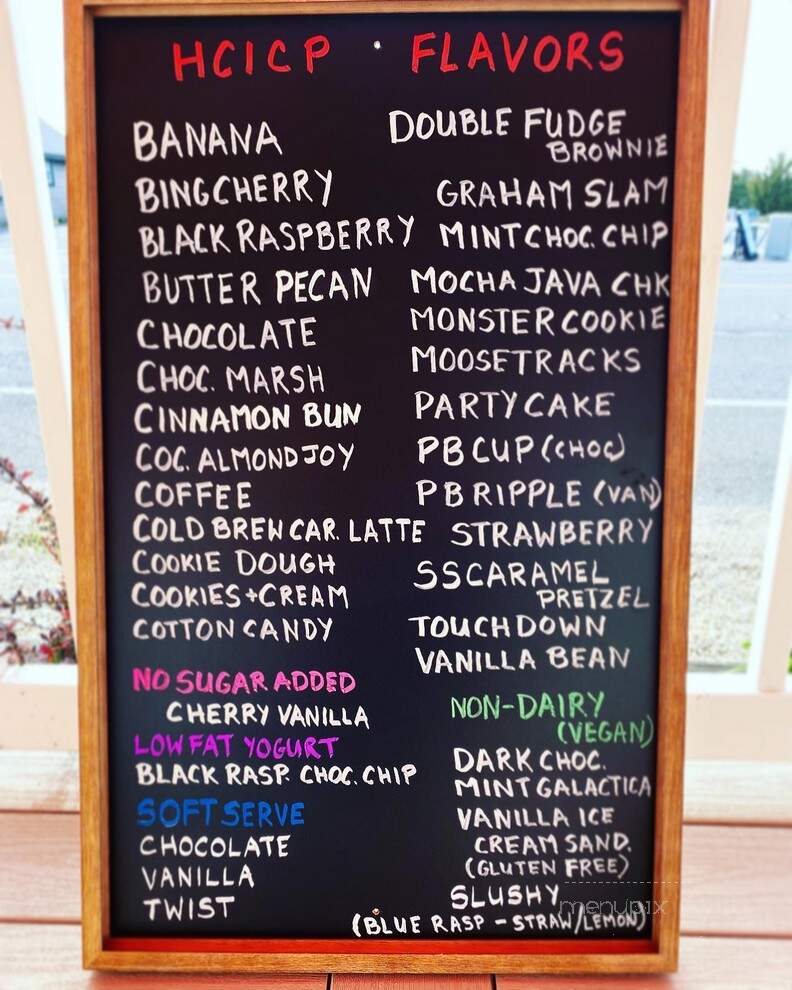 HCICP · FLAVORS
BANANA
BINGCHERRY
BLACK RASPBERRY
BUTTER PECAN
CHOCOLATE
CHOC. MARSH
CINNAMON BUN
COC. ALMOND JOY
COFFEE
COLD BREW CAR. LATTE
COOKIE DOUGH
COOKIES+CREAM
COTTON CANDY
NO SUGAR ADDED
CHERRY VANILLA
LOWFAT YOGURT
BLACK RASP. CHOC. CHIP
SOFT SERVE
CHOCOLATE
VANILLA
TWIST
DOUBLE FUDGE
BROWNIE
GRAHAM SLAM
MINT CHOC. CHIP
MOCHA JAVA CHK
MONSTER COOKIE
MOOSETRACKS
PARTY CAKE
PB CUP (CHOC)
PB RIPPLE (VAN)
STRAWBERRY
SS CARAMEL
PRETZEL
TOUCHDOWN
VANILLA BEAN
NON-DAIRY
(VEGAN)
DARK CHOC.
MINT GALACTICA
VANILLA ICE
CREAM SAND.
(GLUTEN FREE)
SLUSHY
(BLUE RASP - STRAW/LEMON)
menupix